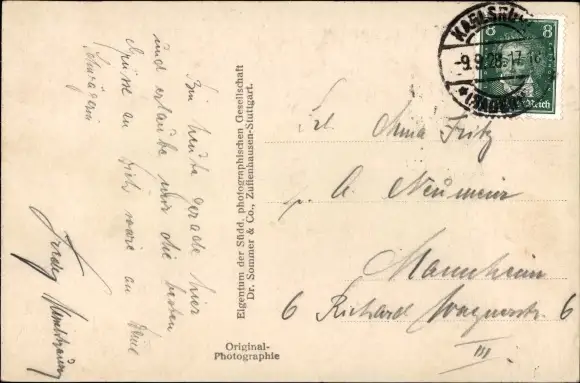 Bin heute gerade hier
und erlaube mir die besten
Grüsse an
Eigentum der Südd. photographischen Gesellschaft
Dr. Sommer & Co., Zuffenhausen-Stuttgart.
Original-
Photographie
KARLSRUHE
-9.9.28.17-18
(BADEN)
8 8
Reich
Frl. Anna Fritz
p. A. Neumeier
Mannheim
6 Richard Wagnerstr. 6
III